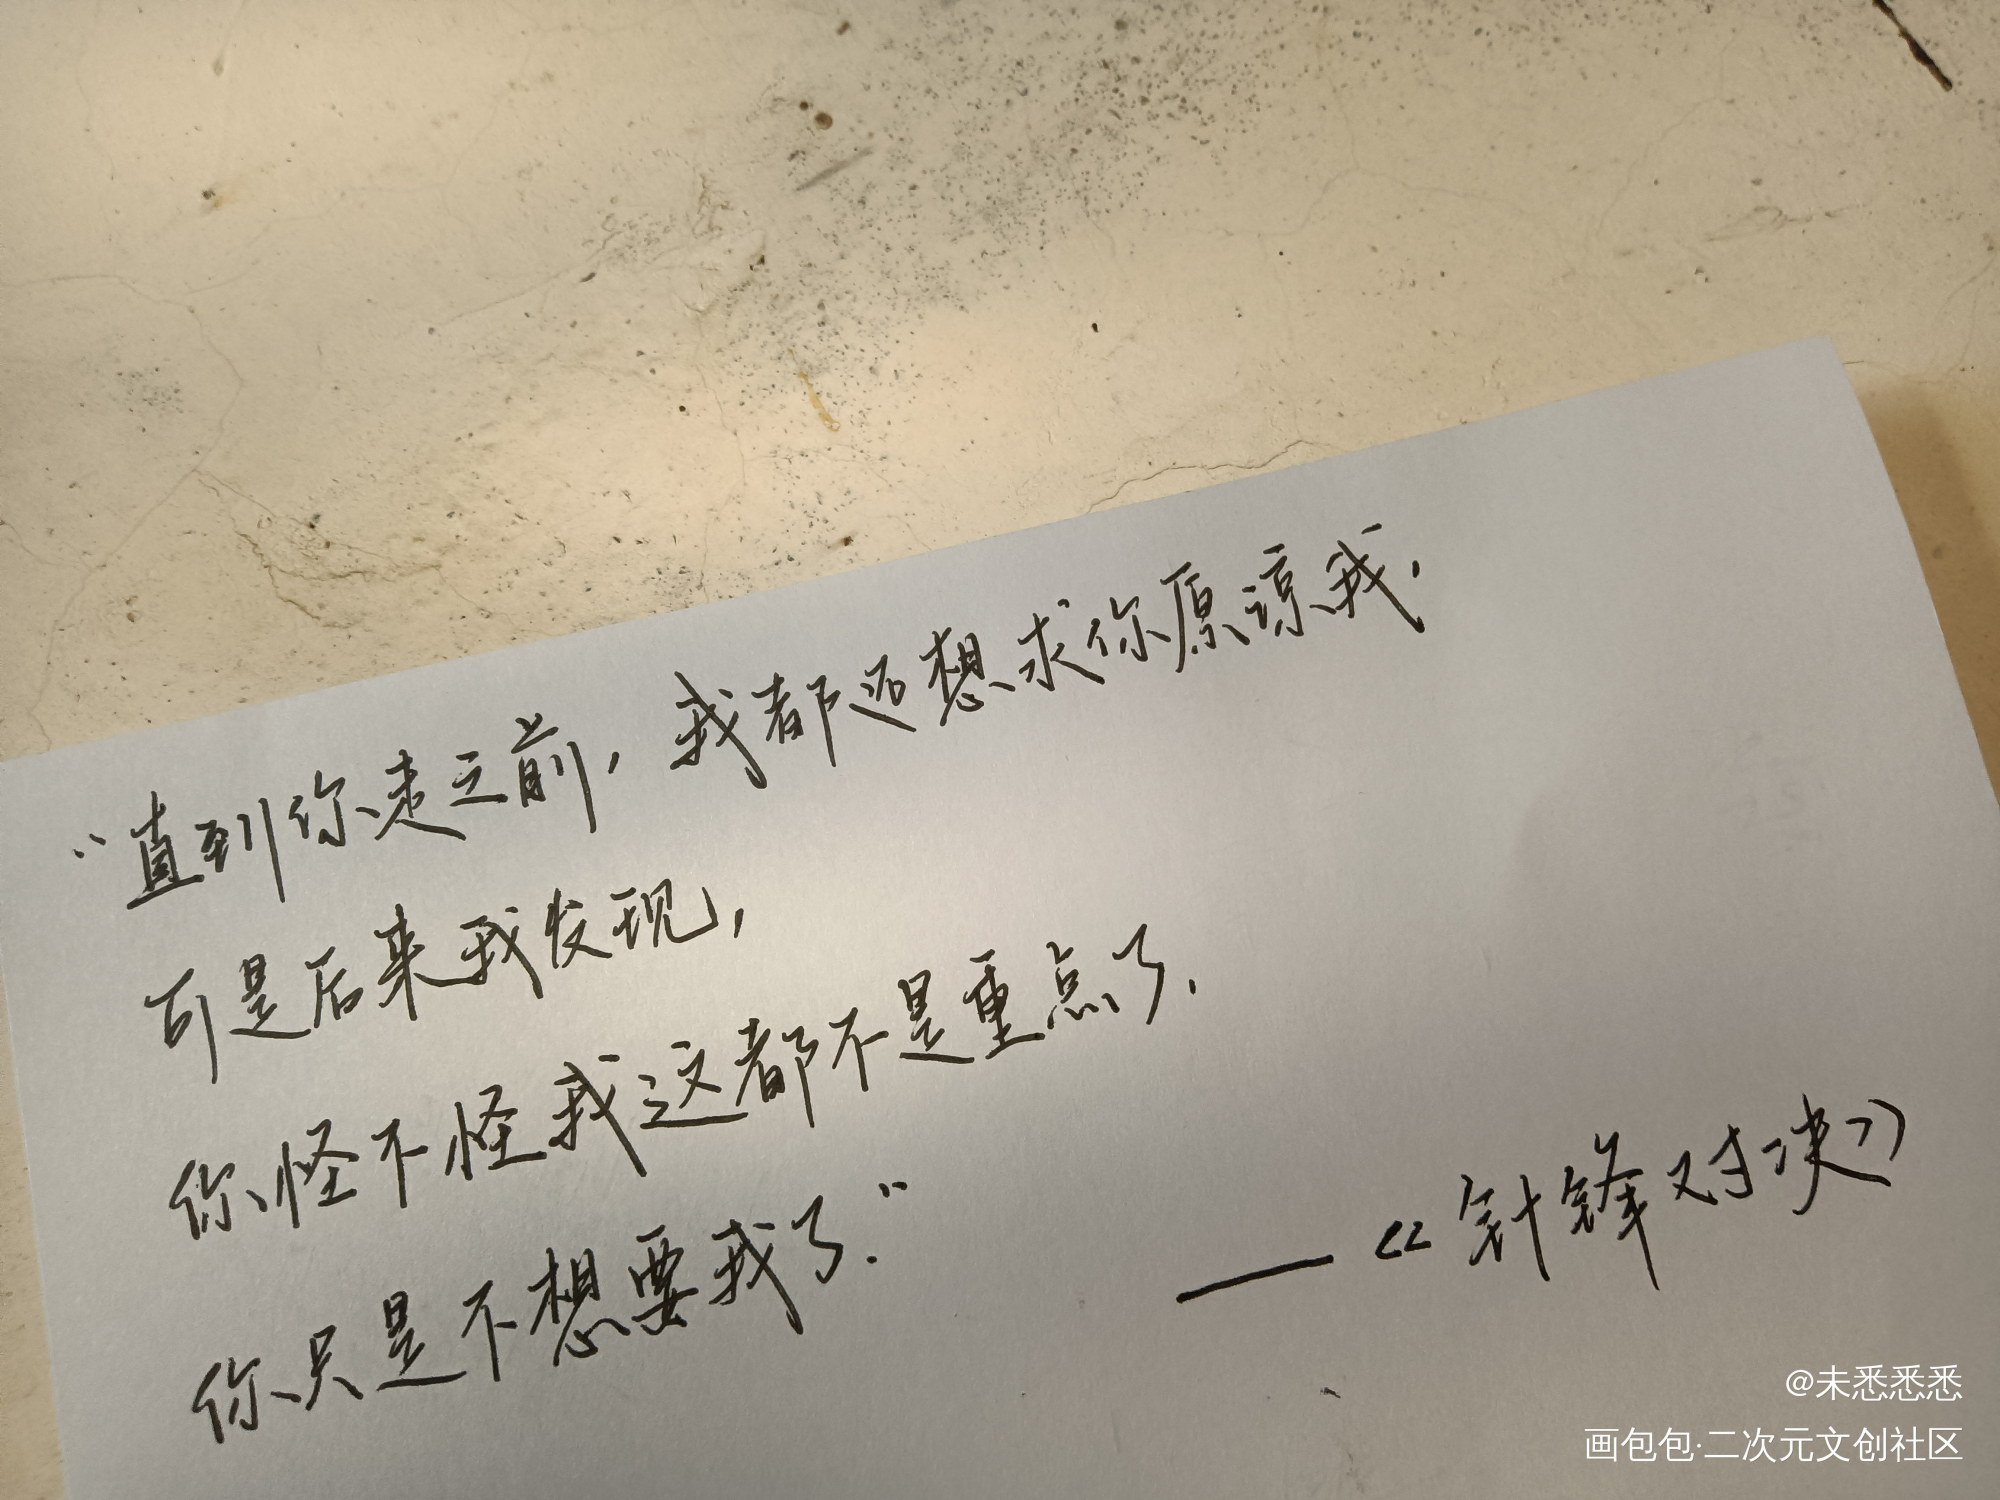 “直到你走之前，我都还想求你原谅我，
可是后来我发现，
你怪不怪我这都不是重点了，
你只是不想要我了.”
——《针锋对决》
@未悉悉悉
画包包·二次元文创社区